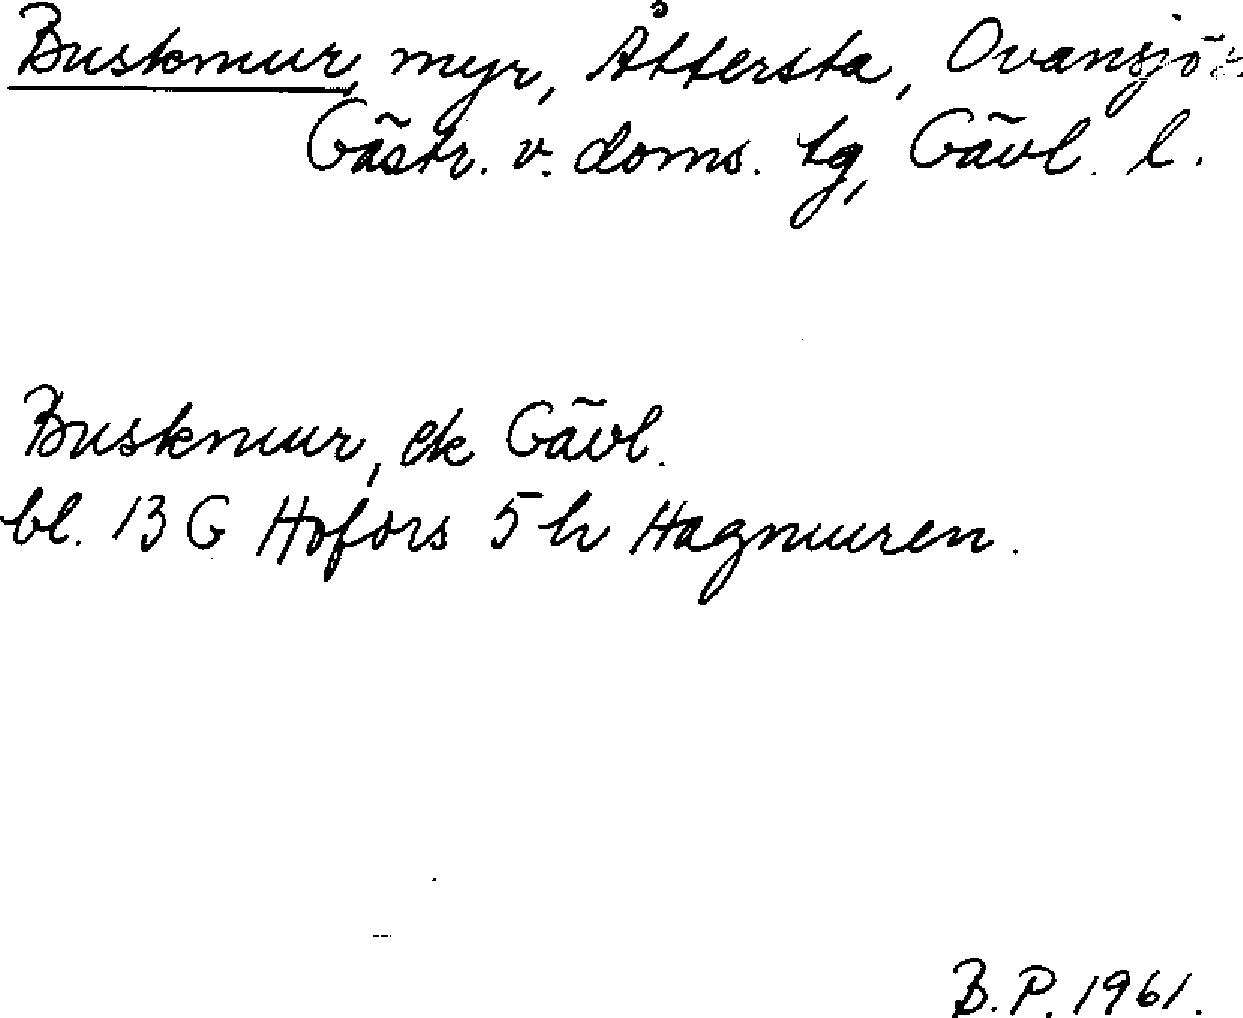 Buskmur, myr, Åttersta, Ovansjö
Gästr. v. doms. tg, Gävl. l.
Buskmur, ek Gävl.
bl. 13 G Hofors 5 h Hagmuren.
B. P. 1961.